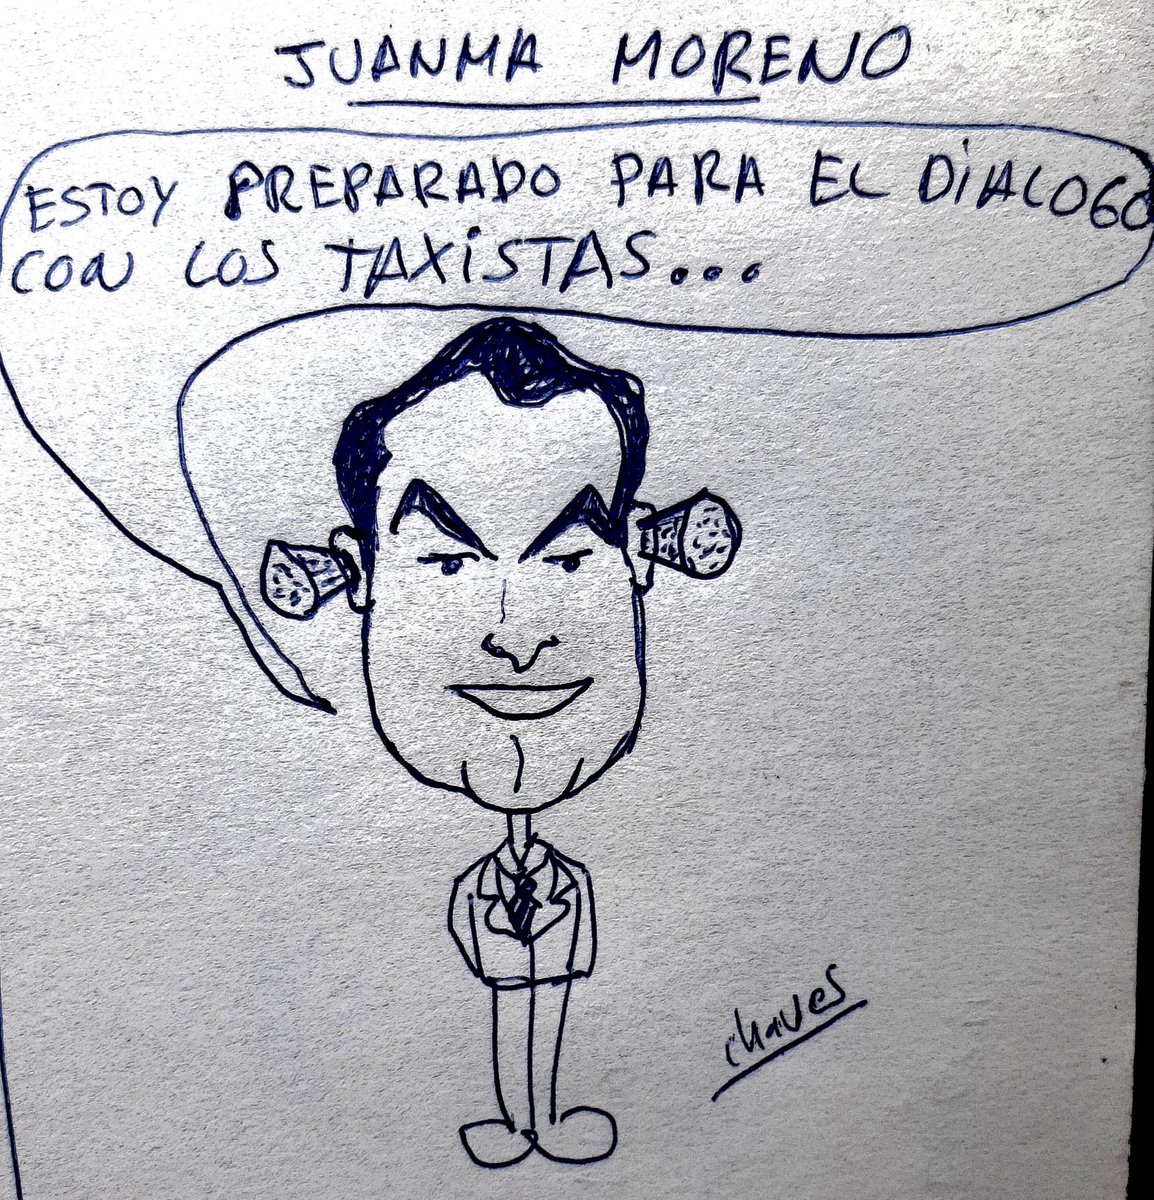 JUANMA MORENO
ESTOY PREPARADO PARA EL DiALOGO
CON LOS TAXiSTAS...
chaves